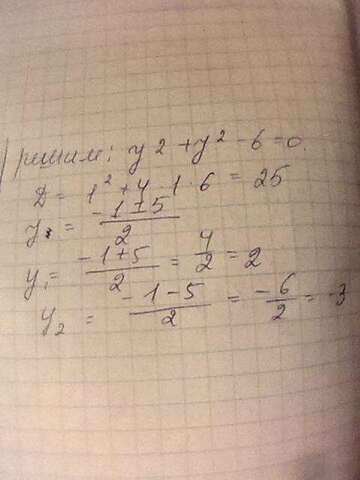 решим: y2 + y² - 6 = 0.
D = 1² + 4 · 1 · 6 = 25
y = (-1 ± 5)/2
y₁ = (-1 + 5)/2 = 4/2 = 2
y₂ = (-1 - 5)/2 = -6/2 = -3